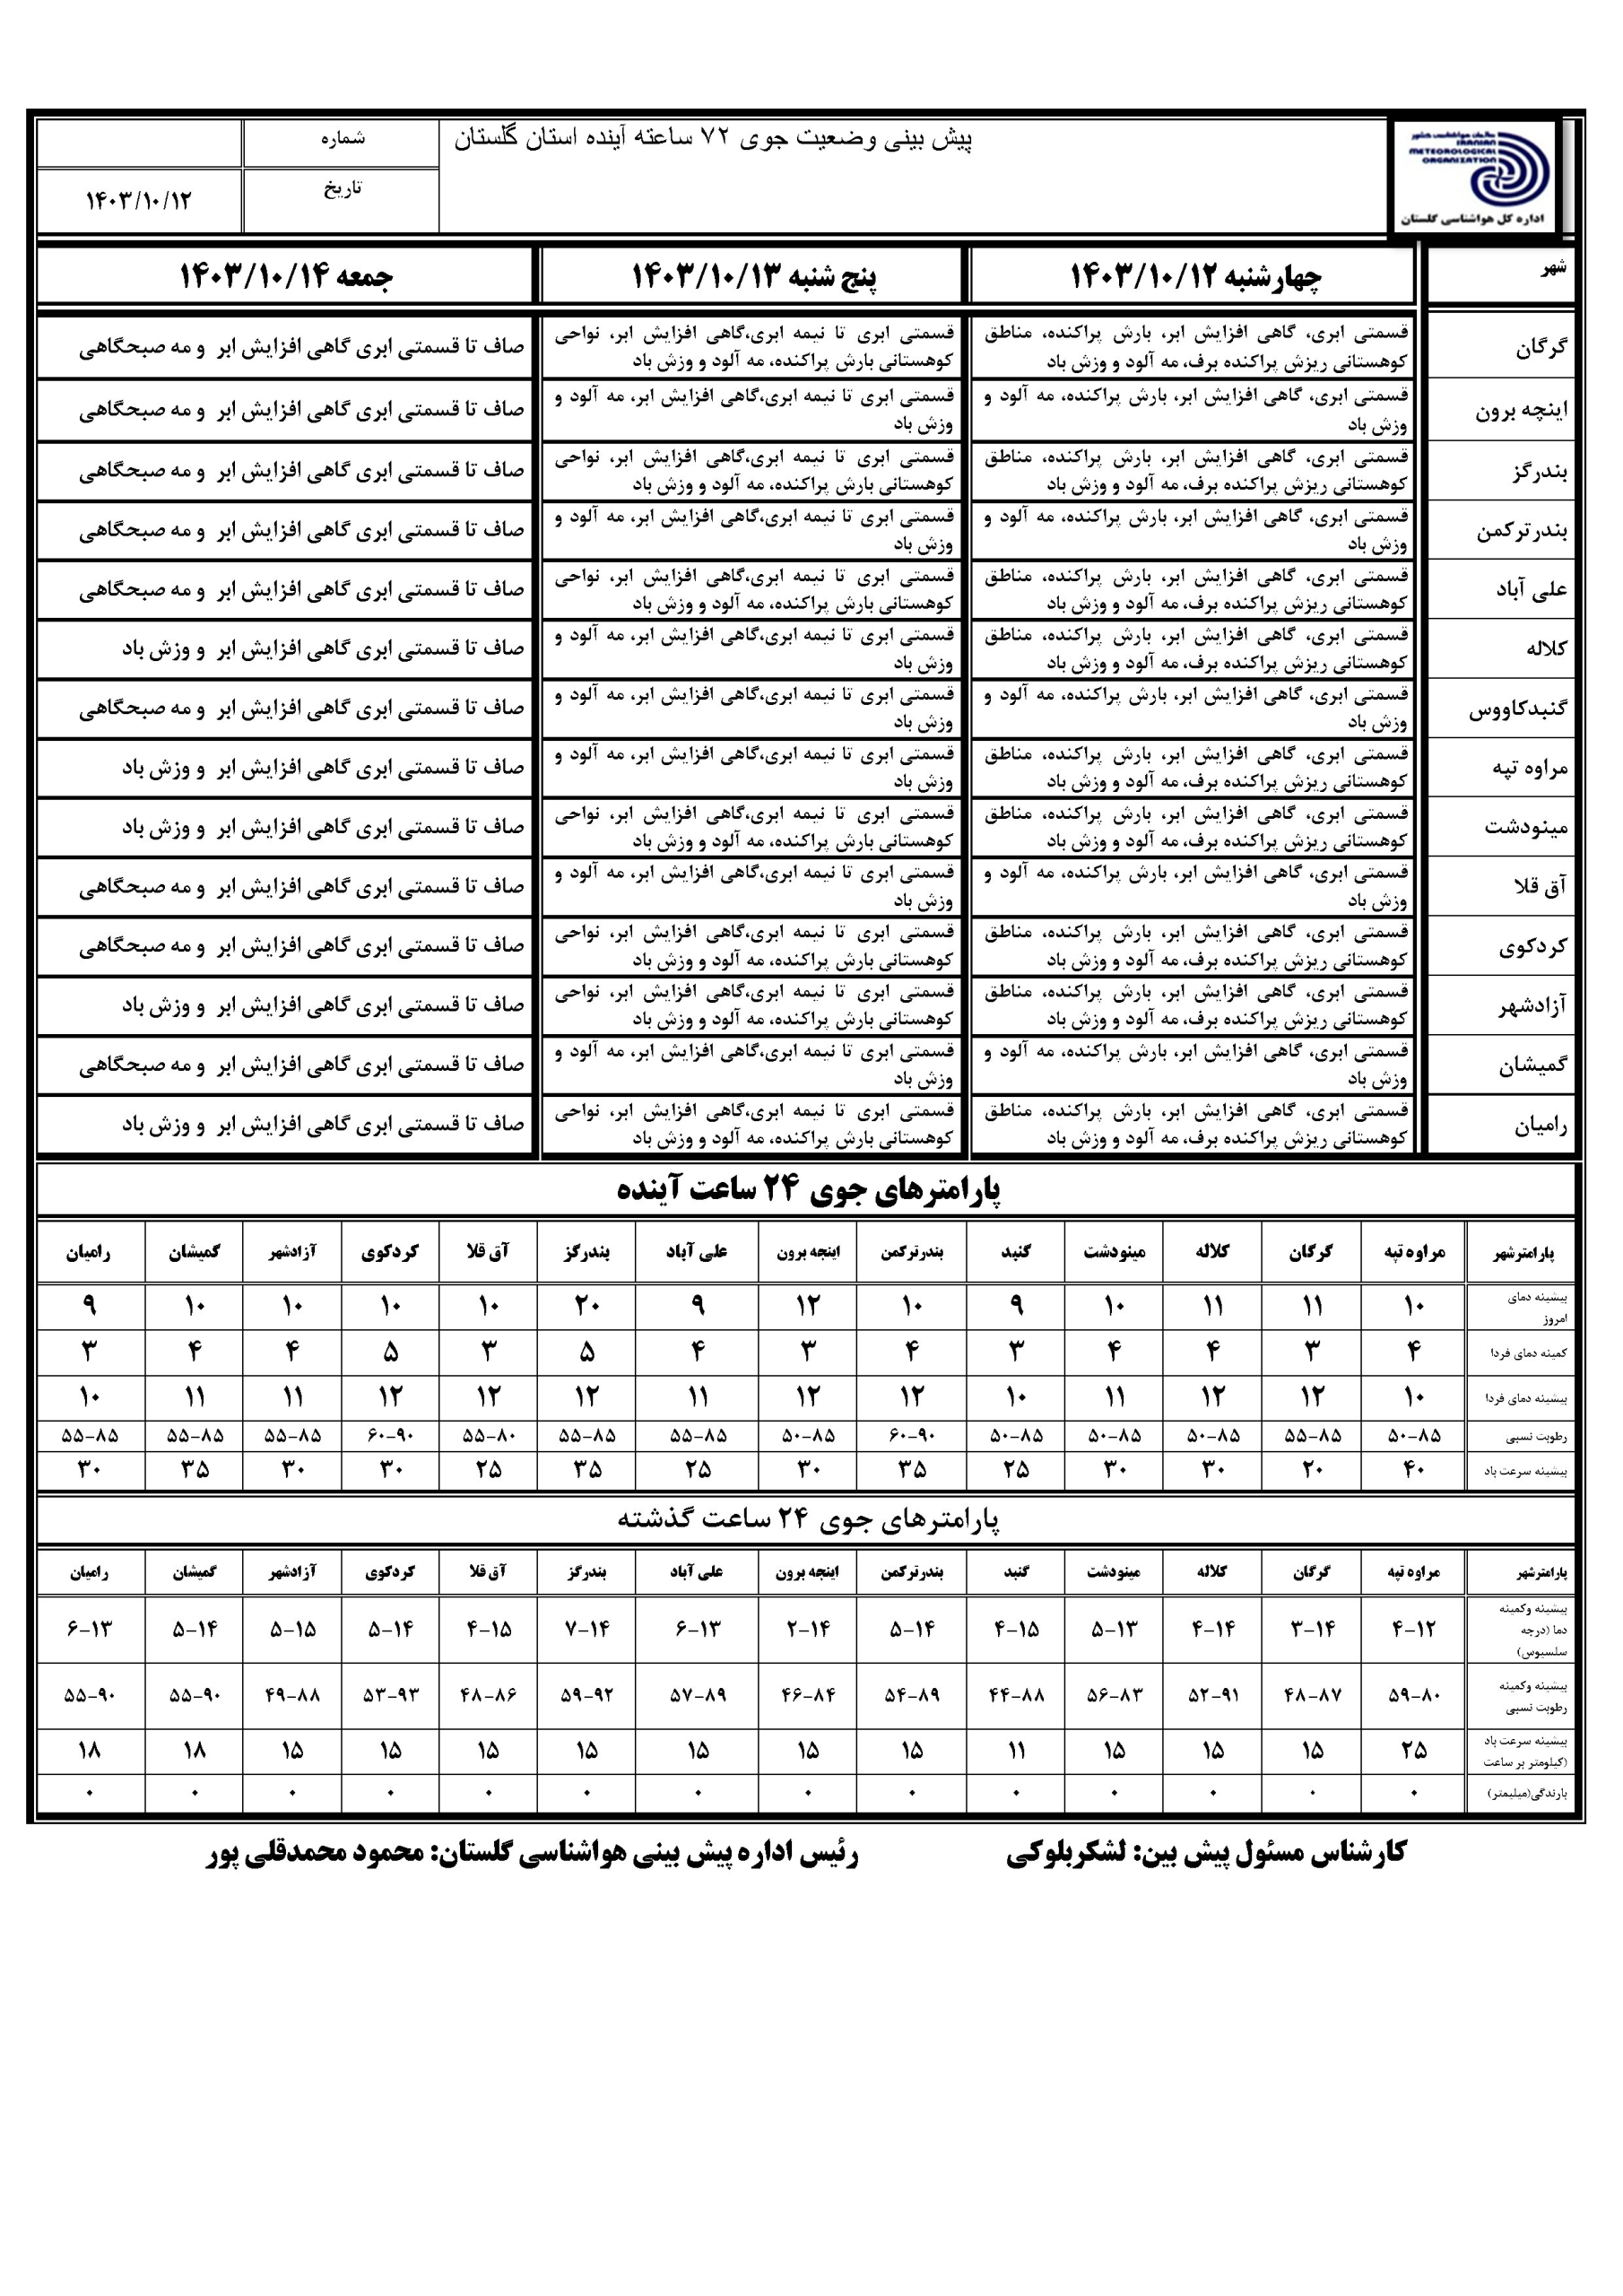 سازمان هواشناسی کشور
IRANIAN
METEOROLOGICAL
ORGANIZATION
اداره کل هواشناسی گلستان
پیش بینی وضعیت جوی ۷۲ ساعته آینده استان گلستان
شماره
تاریخ ۱۴۰۳/۱۰/۱۲
شهر چهارشنبه ۱۴۰۳/۱۰/۱۲ پنج شنبه ۱۴۰۳/۱۰/۱۳ جمعه ۱۴۰۳/۱۰/۱۴
گرگان قسمتی ابری، گاهی افزایش ابر، بارش پراکنده، مناطق کوهستانی ریزش پراکنده برف، مه آلود و وزش باد قسمتی ابری تا نیمه ابری،گاهی افزایش ابر، نواحی کوهستانی بارش پراکنده، مه آلود و وزش باد صاف تا قسمتی ابری گاهی افزایش ابر و مه صبحگاهی
اینچه برون قسمتی ابری، گاهی افزایش ابر، بارش پراکنده، مه آلود و وزش باد قسمتی ابری تا نیمه ابری،گاهی افزایش ابر، مه آلود و وزش باد صاف تا قسمتی ابری گاهی افزایش ابر و مه صبحگاهی
بندرگز قسمتی ابری، گاهی افزایش ابر، بارش پراکنده، مناطق کوهستانی ریزش پراکنده برف، مه آلود و وزش باد قسمتی ابری تا نیمه ابری،گاهی افزایش ابر، نواحی کوهستانی بارش پراکنده، مه آلود و وزش باد صاف تا قسمتی ابری گاهی افزایش ابر و مه صبحگاهی
بندرترکمن قسمتی ابری، گاهی افزایش ابر، بارش پراکنده، مه آلود و وزش باد قسمتی ابری تا نیمه ابری،گاهی افزایش ابر، مه آلود و وزش باد صاف تا قسمتی ابری گاهی افزایش ابر و مه صبحگاهی
علی آباد قسمتی ابری، گاهی افزایش ابر، بارش پراکنده، مناطق کوهستانی ریزش پراکنده برف، مه آلود و وزش باد قسمتی ابری تا نیمه ابری،گاهی افزایش ابر، نواحی کوهستانی بارش پراکنده، مه آلود و وزش باد صاف تا قسمتی ابری گاهی افزایش ابر و مه صبحگاهی
کلاله قسمتی ابری، گاهی افزایش ابر، بارش پراکنده، مناطق کوهستانی ریزش پراکنده برف، مه آلود و وزش باد قسمتی ابری تا نیمه ابری،گاهی افزایش ابر، مه آلود و وزش باد صاف تا قسمتی ابری گاهی افزایش ابر و وزش باد
گنبدکاووس قسمتی ابری، گاهی افزایش ابر، بارش پراکنده، مه آلود و وزش باد قسمتی ابری تا نیمه ابری،گاهی افزایش ابر، مه آلود و وزش باد صاف تا قسمتی ابری گاهی افزایش ابر و مه صبحگاهی
مراوه تپه قسمتی ابری، گاهی افزایش ابر، بارش پراکنده، مناطق کوهستانی ریزش پراکنده برف، مه آلود و وزش باد قسمتی ابری تا نیمه ابری،گاهی افزایش ابر، مه آلود و وزش باد صاف تا قسمتی ابری گاهی افزایش ابر و وزش باد
مینودشت قسمتی ابری، گاهی افزایش ابر، بارش پراکنده، مناطق کوهستانی ریزش پراکنده برف، مه آلود و وزش باد قسمتی ابری تا نیمه ابری،گاهی افزایش ابر، نواحی کوهستانی بارش پراکنده، مه آلود و وزش باد صاف تا قسمتی ابری گاهی افزایش ابر و وزش باد
آق قلا قسمتی ابری، گاهی افزایش ابر، بارش پراکنده، مه آلود و وزش باد قسمتی ابری تا نیمه ابری،گاهی افزایش ابر، مه آلود و وزش باد صاف تا قسمتی ابری گاهی افزایش ابر و مه صبحگاهی
کردکوی قسمتی ابری، گاهی افزایش ابر، بارش پراکنده، مناطق کوهستانی ریزش پراکنده برف، مه آلود و وزش باد قسمتی ابری تا نیمه ابری،گاهی افزایش ابر، نواحی کوهستانی بارش پراکنده، مه آلود و وزش باد صاف تا قسمتی ابری گاهی افزایش ابر و مه صبحگاهی
آزادشهر قسمتی ابری، گاهی افزایش ابر، بارش پراکنده، مناطق کوهستانی ریزش پراکنده برف، مه آلود و وزش باد قسمتی ابری تا نیمه ابری،گاهی افزایش ابر، نواحی کوهستانی بارش پراکنده، مه آلود و وزش باد صاف تا قسمتی ابری گاهی افزایش ابر و وزش باد
گمیشان قسمتی ابری، گاهی افزایش ابر، بارش پراکنده، مه آلود و وزش باد قسمتی ابری تا نیمه ابری،گاهی افزایش ابر، مه آلود و وزش باد صاف تا قسمتی ابری گاهی افزایش ابر و مه صبحگاهی
رامیان قسمتی ابری، گاهی افزایش ابر، بارش پراکنده، مناطق کوهستانی ریزش پراکنده برف، مه آلود و وزش باد قسمتی ابری تا نیمه ابری،گاهی افزایش ابر، نواحی کوهستانی بارش پراکنده، مه آلود و وزش باد صاف تا قسمتی ابری گاهی افزایش ابر و وزش باد
پارامترهای جوی ۲۴ ساعت آینده
پارامترشهر مراوه تپه گرگان کلاله مینودشت گنبد بندرترکمن اینچه برون علی آباد بندرگز آق قلا کردکوی آزادشهر گمیشان رامیان
بیشینه دمای امروز ۱۰ ۱۱ ۱۱ ۱۰ ۹ ۱۰ ۱۲ ۹ ۲۰ ۱۰ ۱۰ ۱۰ ۱۰ ۹
کمینه دمای فردا ۴ ۳ ۴ ۴ ۳ ۴ ۳ ۴ ۵ ۳ ۵ ۴ ۴ ۳
بیشینه دمای فردا ۱۰ ۱۲ ۱۲ ۱۱ ۱۰ ۱۲ ۱۲ ۱۱ ۱۲ ۱۲ ۱۲ ۱۱ ۱۱ ۱۰
رطوبت نسبی ۵۰-۸۵ ۵۵-۸۵ ۵۰-۸۵ ۵۰-۸۵ ۵۰-۸۵ ۶۰-۹۰ ۵۰-۸۵ ۵۵-۸۵ ۵۵-۸۵ ۵۵-۸۰ ۶۰-۹۰ ۵۵-۸۵ ۵۵-۸۵ ۵۵-۸۵
بیشینه سرعت باد ۴۰ ۲۰ ۳۰ ۳۰ ۲۵ ۳۵ ۳۰ ۲۵ ۳۵ ۲۵ ۳۰ ۳۰ ۳۵ ۳۰
پارامترهای جوی ۲۴ ساعت گذشته
پارامترشهر مراوه تپه گرگان کلاله مینودشت گنبد بندرترکمن اینچه برون علی آباد بندرگز آق قلا کردکوی آزادشهر گمیشان رامیان
بیشینه وکمینه دما (درجه سلسیوس) ۴-۱۲ ۳-۱۴ ۴-۱۴ ۵-۱۳ ۴-۱۵ ۵-۱۴ ۲-۱۴ ۶-۱۳ ۷-۱۴ ۴-۱۵ ۵-۱۴ ۵-۱۵ ۵-۱۴ ۶-۱۳
بیشینه وکمینه رطوبت نسبی ۵۹-۸۰ ۴۸-۸۷ ۵۲-۹۱ ۵۶-۸۳ ۴۴-۸۸ ۵۴-۸۹ ۴۶-۸۴ ۵۷-۸۹ ۵۹-۹۲ ۴۸-۸۶ ۵۳-۹۳ ۴۹-۸۸ ۵۵-۹۰ ۵۵-۹۰
بیشینه سرعت باد (کیلومتر بر ساعت ۲۵ ۱۵ ۱۵ ۱۵ ۱۱ ۱۵ ۱۵ ۱۵ ۱۵ ۱۵ ۱۵ ۱۵ ۱۸ ۱۸
بارندگی(میلیمتر) ۰ ۰ ۰ ۰ ۰ ۰ ۰ ۰ ۰ ۰ ۰ ۰ ۰ ۰
کارشناس مسئول پیش بین: لشکربلوکی رئیس اداره پیش بینی هواشناسی گلستان: محمود محمدقلی پور